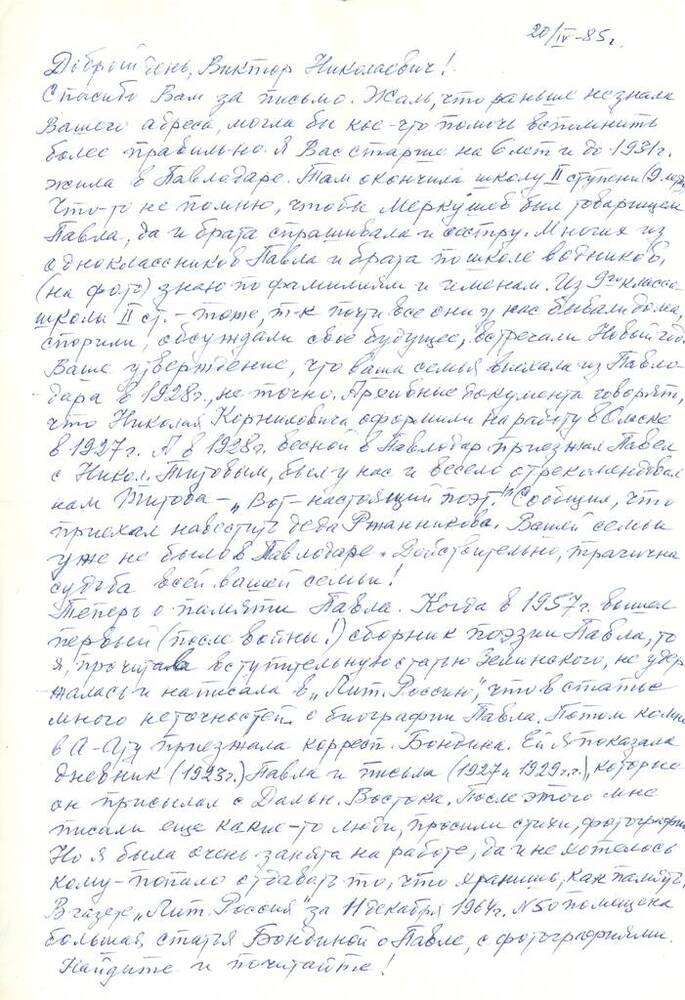 20/IV-85г.
Добрый день, Виктор Николаевич!
Спасибо Вам за письмо. Жаль, что раньше не знала
Вашего адреса, могла бы кое-что помочь вспомнить
более правильно. Я Вас старше на 6 лет и до 1931г.
жила в Павлодаре. Там окончила школу II ступени (9 лет)
Что-то не помню, чтобы Меркушев был товарищем
Павла, да и брата спрашивала и сестру. Многих из
одноклассников Павла и брата по школе водников,
(на фото) знаю по фамилиям и именам. Из 9го класса
школы II ст. - тоже, т-к почти все они у нас бывали дома,
спорили, обсуждали свое будущее, встречали Новый год.
Ваше утверждение, что ваша семья выехала из Павло-
дара в 1928г., не точно. Архивные документы говорят,
что Николая Корниловича оформили на работу в Омске
в 1927г. А в 1928г. весной в Павлодар приезжал Павел
с Никол. Титовым, был у нас и весело отрекомендовал
нам Титова - "Вот - настоящий поэт!" Сообщил, что
приехал навестить деда Ржанникова. Вашей семьи
уже не было в Павлодаре. Действительно, трагична
судьба всей вашей семьи!
Теперь о памяти Павла. Когда в 1957г. вышел
первый (после войны!) сборник поэзии Павла, то
я, прочитав вступительную статью Зелинского, не удер-
жалась и написала в "Лит. Россию", что в статье
много неточностей о биографии Павла. Потом ко мне
в А-Ату приезжала корресп. Бондина. Ей я показала
дневник (1923г.) Павла и письма (1927 и 1929г.г.), которые
он присылал с Дальн. Востока. После этого мне
писали еще какие-то люди, просили стихи, фотографии
Но я была очень занята на работе, да и не хотелось
кому-попало отдавать то, что хранишь, как память.
В газете "Лит. Россия" за 11 декабря 1964г. N 50 помещена
большая статья Бондиной о Павле, с фотографиями.
Найдите и почитайте!